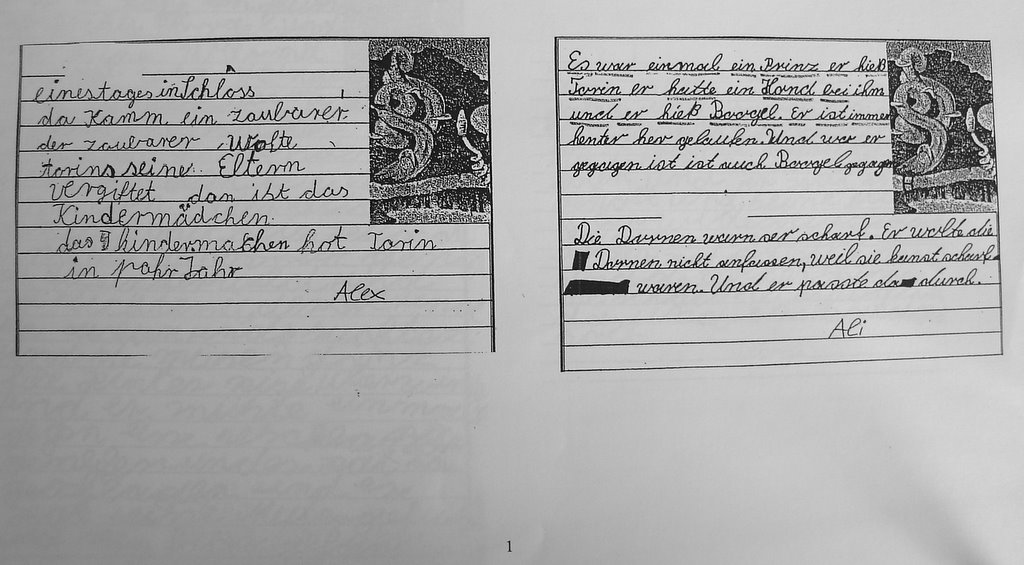 eines tages in Schloss
da Kamm ein zaubarer
der zaubarer Wolte
torins seine Eltern
vergiftet dan ist das
Kindermädchen
das kindermachen hat Torin
in pahr Jahr
Alex
Es war einmal ein Prinz er hieß
Torin er hatte ein Hond bei ihm
und er hieß Boogel. Er ist immer
henter her gelaufen. Und wo er
gegagen ist ist auch Boogel gegagen
Die Durnen warn ser scharf. Er wolte die
Durnen nicht anfassen, weil sie scharf
waren. Und er passte da durch.
Ali
1